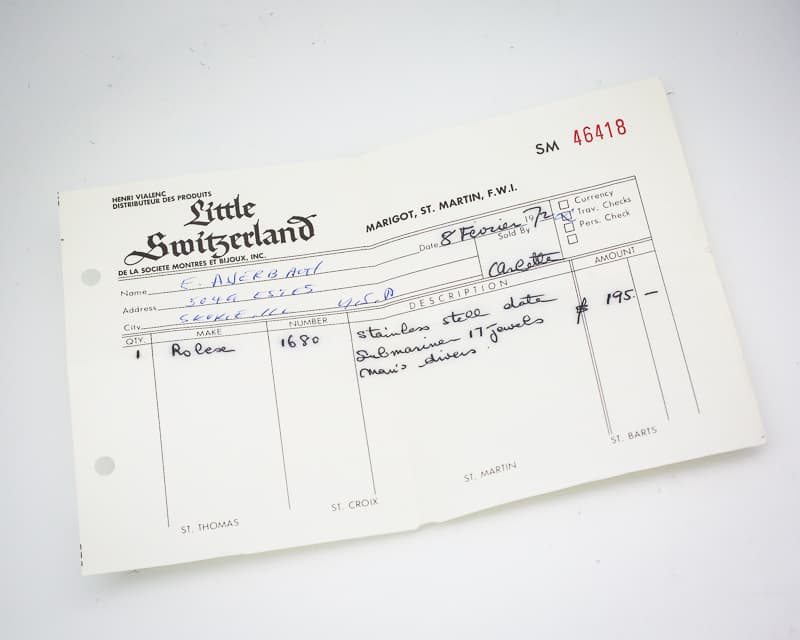 SM 46418
HENRI VIALENC
DISTRIBUTEUR DES PRODUITS
Little
Switzerland
DE LA SOCIETE MONTRES ET BIJOUX, INC.
MARIGOT, ST. MARTIN, F.W.I.
Date 8 Février 1972
Sold By
Arlette
Currency
Trav. Checks
Pers. Check
Name E.
Address
City SKOKIE, ILL U.S.A
QTY. MAKE NUMBER DESCRIPTION AMOUNT
1 Rolex 1680 stainless stell date $ 195. —
Submariner 17 jewels
man's divers
ST. THOMAS ST. CROIX ST. MARTIN ST. BARTS